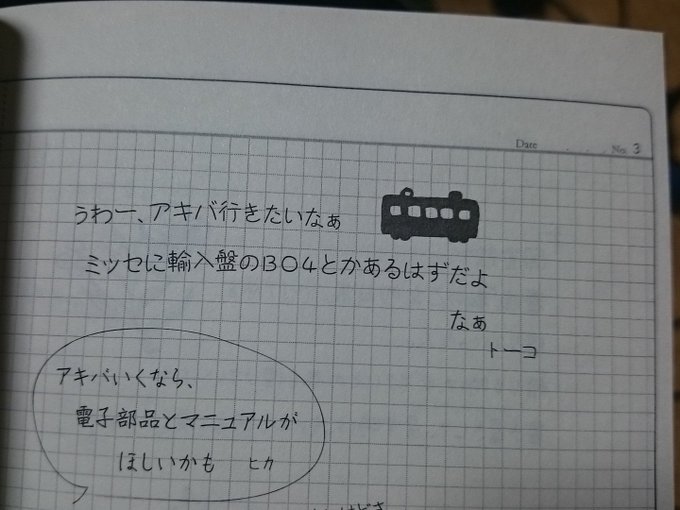 Date . . . No. 3
うわー、アキバ行きたいなぁ
ミッセに輸入盤のBO4とかあるはずだよ
なぁ
トーコ
アキバいくなら、
電子部品とマニュアルが
ほしいかも ヒカ